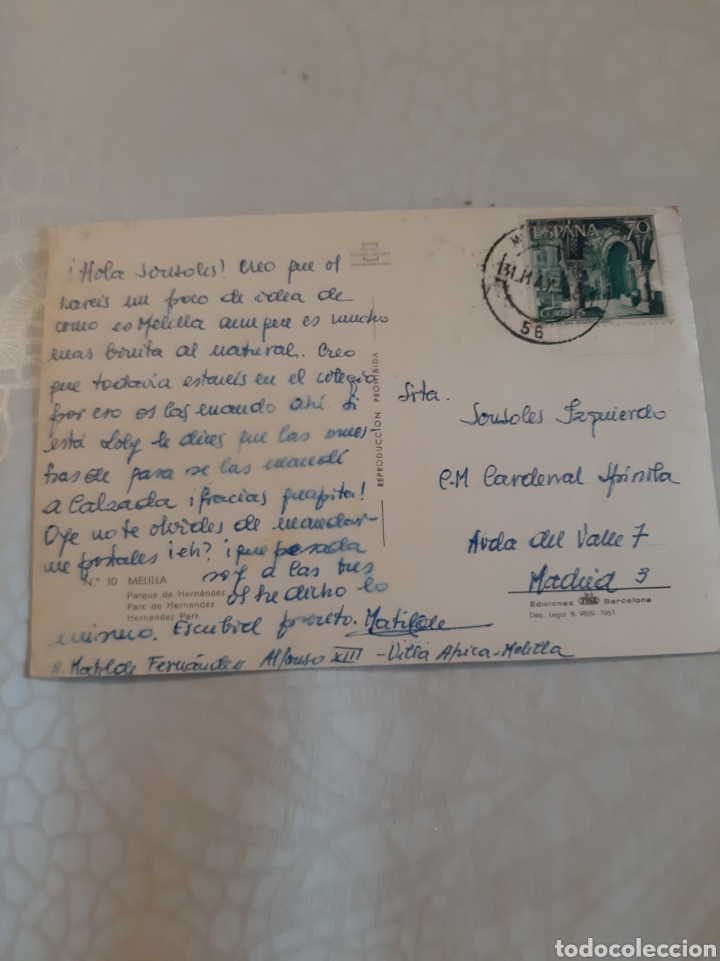 ¡Hola Sonsoles! Creo que os
hareis un poco de idea de
como es Melilla aunque es mucho
mas bonita al natural. Creo
que todavia estareis en el colegio
por eso os las mando ahi. Si
está Loly le dices que las mues-
tras de para se las mandé
a Calzada ¡gracias guapita!
Oye no te olvides de mandar-
me postales ¡eh? ¡que pesada
soy a las tres
os he dicho lo
mismo. Escribid pronto. Matilde
R. Matilde Fernández Alfonso XIII - Villa Africa - Melilla
Nº 10 MELILLA
Parque de Hernández
Parc de Hernandez
Hernandez Park
REPRODUCCION PROHIBIDA
ESPAÑA 70
CORREOS
31.MAY
56
Srta.
Sonsoles Izquierdo
C.M Cardenal Spinila
Avda del Valle 7
Madrid 3
Ediciones Barcelona
Dep. Legal B. 9859-1963
todocoleccion